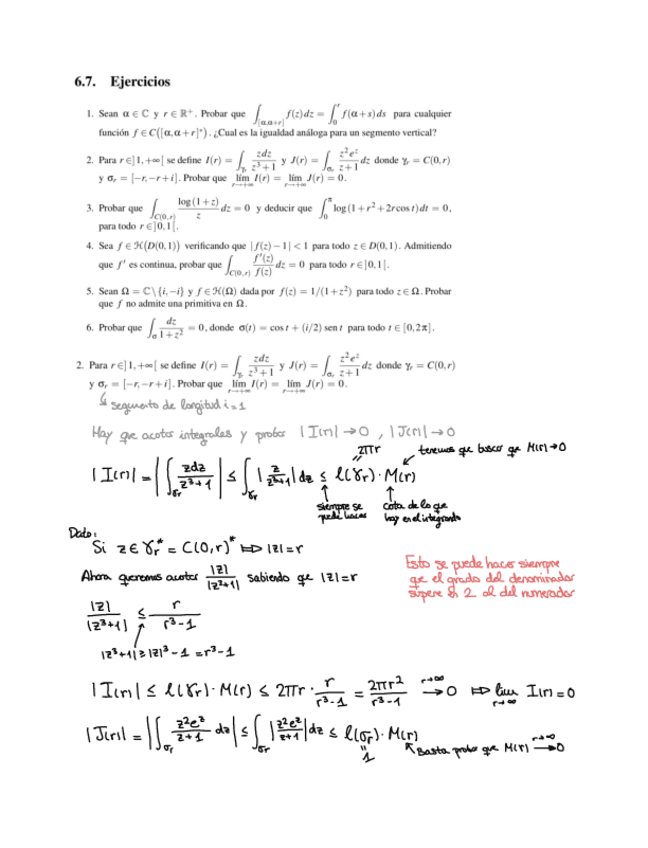 6.7. Ejercicios
1. Sean α ∈ ℂ y r ∈ ℝ⁺. Probar que ∫_{[α,α+r]} f(z)dz = ∫_0^r f(α+s)ds para cualquier
función f ∈ C([α,α+r]*). ¿Cual es la igualdad análoga para un segmento vertical?
2. Para r ∈]1,+∞[ se define I(r) = ∫_{γ_r} zdz/(z³+1) y J(r) = ∫_{σ_r} z²e^z/(z+1) dz donde γ_r = C(0,r)
y σ_r = [−r,−r+i]. Probar que lím_{r→+∞} I(r) = lím_{r→+∞} J(r) = 0.
3. Probar que ∫_{C(0,r)} log(1+z)/z dz = 0 y deducir que ∫_0^π log(1+r²+2r cos t)dt = 0,
para todo r ∈]0,1[.
4. Sea f ∈ ℋ(D(0,1)) verificando que |f(z)−1| < 1 para todo z ∈ D(0,1). Admitiendo
que f′ es continua, probar que ∫_{C(0,r)} f′(z)/f(z) dz = 0 para todo r ∈]0,1[.
5. Sean Ω = ℂ\{i,−i} y f ∈ ℋ(Ω) dada por f(z) = 1/(1+z²) para todo z ∈ Ω. Probar
que f no admite una primitiva en Ω.
6. Probar que ∫_σ dz/(1+z²) = 0, donde σ(t) = cos t + (i/2) sen t para todo t ∈ [0,2π].
2. Para r ∈]1,+∞[ se define I(r) = ∫_{γ_r} zdz/(z³+1) y J(r) = ∫_{σ_r} z²e^z/(z+1) dz donde γ_r = C(0,r)
y σ_r = [−r,−r+i]. Probar que lím_{r→+∞} I(r) = lím_{r→+∞} J(r) = 0.
↳ segmento de longitud i = 1
Hay que acotar integrales y probar |I(r)| → 0 , |J(r)| → 0
2πr
tenemos que buscar que M(r) → 0
|I(r)| = |∫_{γ_r} zdz/(z³+1)| ≤ ∫_{γ_r} |z/(z³+1)| dz ≤ l(γ_r)·M(r)
siempre se
puede hacer
cota de lo que
hay en el integrando
Dato:
Si z ∈ γ_r* = C(0,r)* ⇒ |z| = r
Ahora queremos acotar |z|/|z³+1| sabiendo que |z| = r
Esto se puede hacer siempre
que el grado del denominador
supere en 2 al del numerador
|z|/|z³+1| ≤ r/(r³−1)
|z³+1| ≥ |z|³ − 1 = r³−1
|I(r)| ≤ l(γ_r)·M(r) ≤ 2πr · r/(r³−1) = 2πr²/(r³−1) →^{r→∞} 0 ⇒ lim_{r→∞} I(r) = 0
|J(r)| = |∫_{σ_r} z²e^z/(z+1) dz| ≤ ∫_{σ_r} |z²e^z/(z+1)| dz ≤ l(σ_r)·M(r)
1
Basta probar que M(r) →^{r→∞} 0